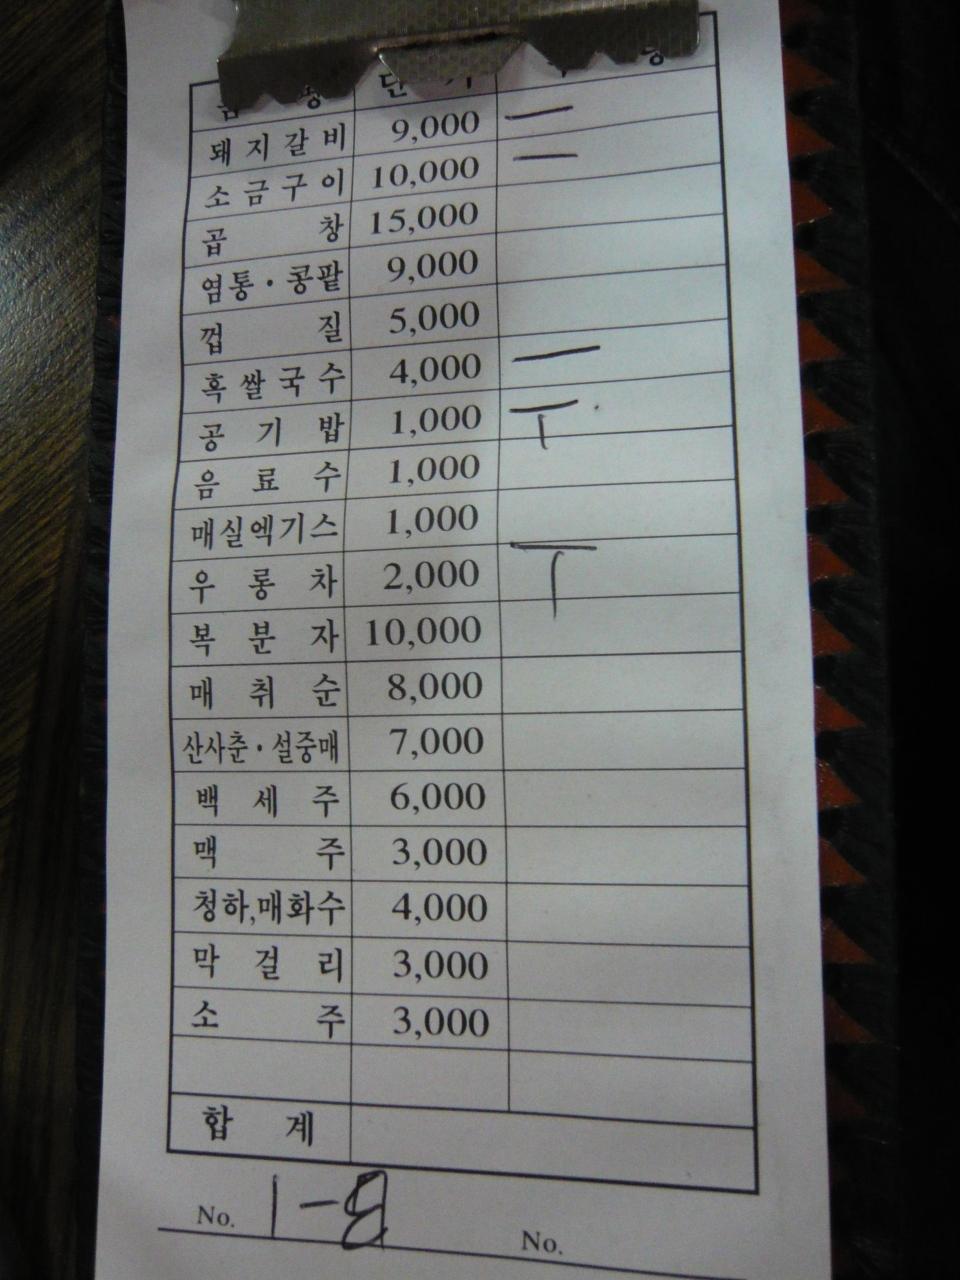 단 가
돼지갈비 9,000 一
소금구이 10,000 一
곱창 15,000
염통·콩팥 9,000
껍질 5,000
흑쌀국수 4,000 一
공기밥 1,000 丅
음료수 1,000
매실엑기스 1,000
우롱차 2,000 丅
복분자 10,000
매취순 8,000
산사춘·설중매 7,000
백세주 6,000
맥주 3,000
청하,매화수 4,000
막걸리 3,000
소주 3,000
합계
No. 1-8 No.